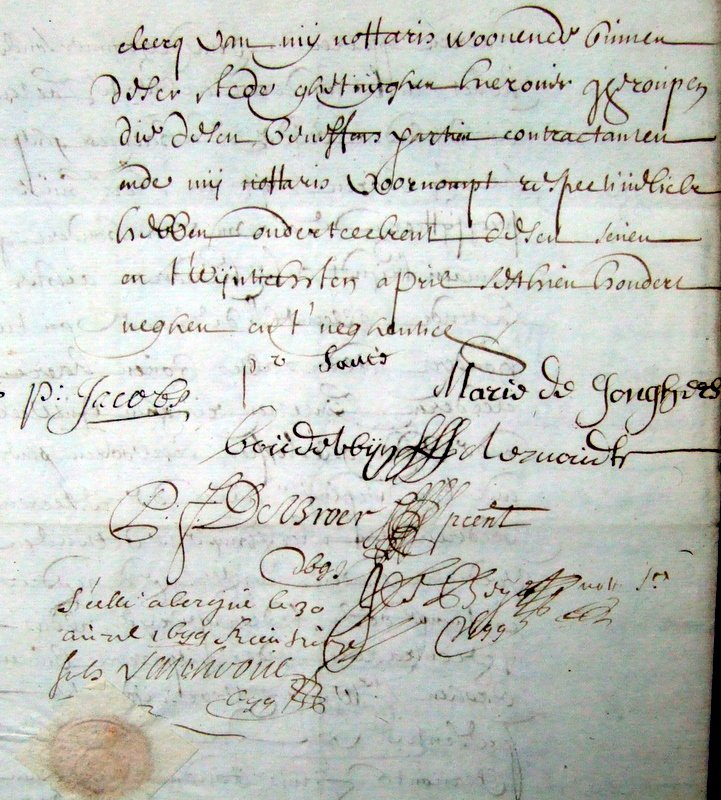 clercq van mij nottaris woonende binnen
deser stede ghetuijghen hierover gheroupen
die desen beneffens partien contractanten
ende mij nottaris voornompt respectivelick
hebben onderteeckent desen seven
en t'wijntichsten april sesthien hondert
neghen en t'neghentich
P: Jacobs
Marie de Jonghers
Boudewyn
P: J: De Brver
1699
Scellé a bergue le 30
auril 1699
1699